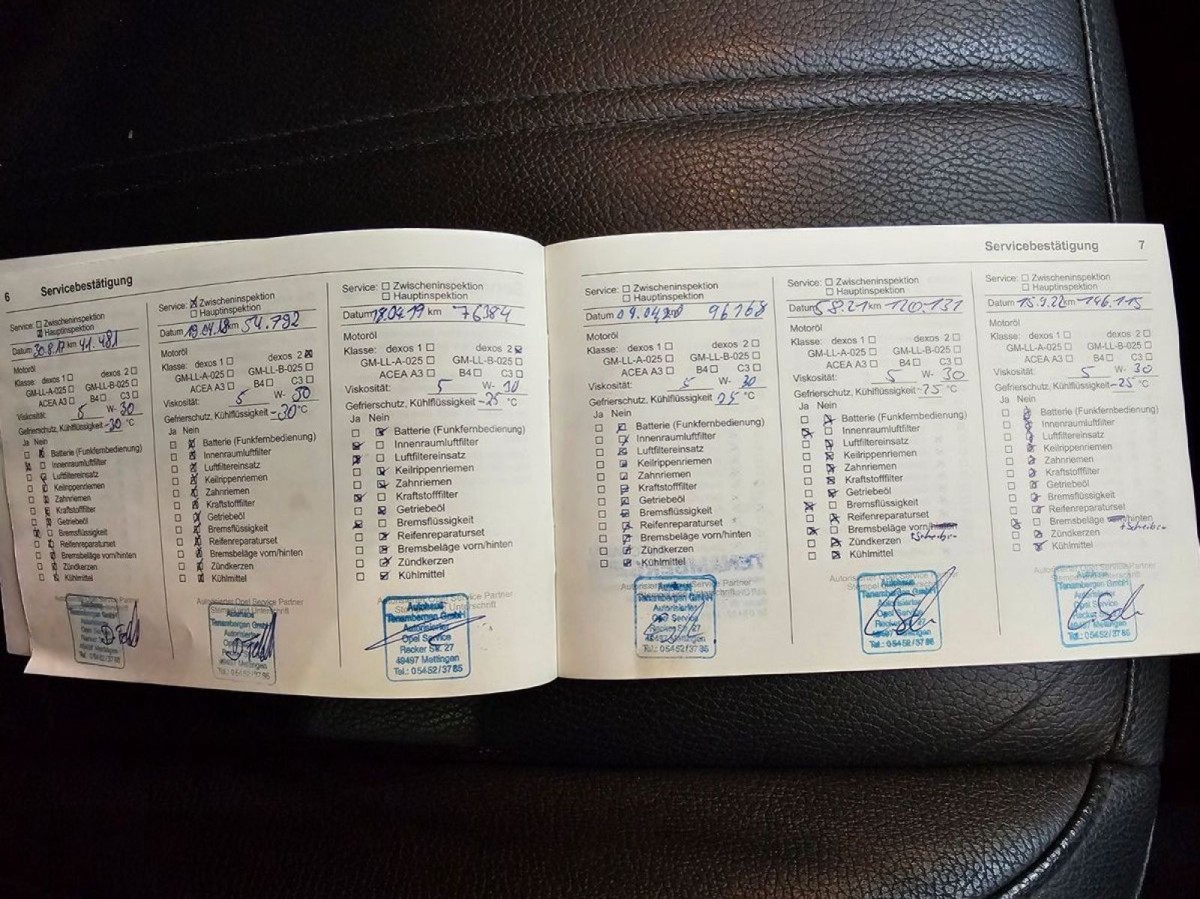 6 Servicebestätigung
Service: ☐ Zwischeninspektion
☒ Hauptinspektion
Datum 30.8.17 km 41.481
Motoröl
Klasse: dexos 1 ☐ dexos 2 ☐
GM-LL-A-025 ☐ GM-LL-B-025 ☐
ACEA A3 ☐ B4 ☐ C3 ☐
Viskosität: 5 W- 30
Gefrierschutz, Kühlflüssigkeit -30 °C
Ja Nein
Batterie (Funkfernbedienung)
Innenraumluftfilter
Luftfiltereinsatz
Keilrippenriemen
Zahnriemen
Kraftstofffilter
Getriebeöl
Bremsflüssigkeit
Reifenreparaturset
Bremsbeläge vorn/hinten
Zündkerzen
Kühlmittel
Service: ☒ Zwischeninspektion
☐ Hauptinspektion
Datum 19.04.18 km 54.792
Motoröl
Klasse: dexos 1 ☐ dexos 2 ☒
GM-LL-A-025 ☐ GM-LL-B-025 ☐
ACEA A3 ☐ B4 ☐ C3 ☐
Viskosität: 5 W- 30
Gefrierschutz, Kühlflüssigkeit -30 °C
Ja Nein
Batterie (Funkfernbedienung)
Innenraumluftfilter
Luftfiltereinsatz
Keilrippenriemen
Zahnriemen
Kraftstofffilter
Getriebeöl
Bremsflüssigkeit
Reifenreparaturset
Bremsbeläge vorn/hinten
Zündkerzen
Kühlmittel
Autorisierter Opel Service Partner
Stempel und Unterschrift
Autohaus
Tenambergen GmbH
Service: ☐ Zwischeninspektion
☐ Hauptinspektion
Datum 18.04.19 km 76384
Motoröl
Klasse: dexos 1 ☐ dexos 2 ☒
GM-LL-A-025 ☐ GM-LL-B-025 ☐
ACEA A3 ☐ B4 ☐ C3 ☐
Viskosität: 5 W- 30
Gefrierschutz, Kühlflüssigkeit -25 °C
Ja Nein
Batterie (Funkfernbedienung)
Innenraumluftfilter
Luftfiltereinsatz
Keilrippenriemen
Zahnriemen
Kraftstofffilter
Getriebeöl
Bremsflüssigkeit
Reifenreparaturset
Bremsbeläge vorn/hinten
Zündkerzen
Kühlmittel
Autohaus
Tenambergen GmbH
Autorisierter
Opel Service
Recker Str. 27
49497 Mettingen
Tel.: 05452/3786
Servicebestätigung 7
Service: ☐ Zwischeninspektion
☐ Hauptinspektion
Datum 96168
Motoröl
Klasse: dexos 1 ☐ dexos 2 ☐
GM-LL-A-025 ☐ GM-LL-B-025 ☐
ACEA A3 ☐ B4 ☐ C3 ☐
Viskosität: 5 W- 30
Gefrierschutz, Kühlflüssigkeit 25 °C
Ja Nein
Batterie (Funkfernbedienung)
Innenraumluftfilter
Luftfiltereinsatz
Keilrippenriemen
Zahnriemen
Kraftstofffilter
Getriebeöl
Bremsflüssigkeit
Reifenreparaturset
Bremsbeläge vorn/hinten
Zündkerzen
Kühlmittel
Autohaus
Tenambergen GmbH
Autorisierter
Opel Service
Recker Str. 27
49497 Mettingen
Tel.: 05452/3786
Service: ☐ Zwischeninspektion
☐ Hauptinspektion
Datum 5.8.21 km 120.131
Motoröl
Klasse: dexos 1 ☐ dexos 2 ☐
GM-LL-A-025 ☐ GM-LL-B-025 ☐
ACEA A3 ☐ B4 ☐ C3 ☐
Viskosität: 5 W- 30
Gefrierschutz, Kühlflüssigkeit -25 °C
Ja Nein
Batterie (Funkfernbedienung)
Innenraumluftfilter
Luftfiltereinsatz
Keilrippenriemen
Zahnriemen
Kraftstofffilter
Getriebeöl
Bremsflüssigkeit
Reifenreparaturset
Bremsbeläge vorn/
+Scheiben
Zündkerzen
Kühlmittel
Autohaus
Tenambergen GmbH
Autorisierter
Opel Service
Recker Str. 27
49497 Mettingen
Tel.: 05452/3786
Service: ☐ Zwischeninspektion
☐ Hauptinspektion
Datum 15.9.22 km 146.115
Motoröl
Klasse: dexos 1 ☐ dexos 2 ☐
GM-LL-A-025 ☐ GM-LL-B-025 ☐
ACEA A3 ☐ B4 ☐ C3 ☐
Viskosität: 5 W- 30
Gefrierschutz, Kühlflüssigkeit -25 °C
Ja Nein
Batterie (Funkfernbedienung)
Innenraumluftfilter
Luftfiltereinsatz
Keilrippenriemen
Zahnriemen
Kraftstofffilter
Getriebeöl
Bremsflüssigkeit
Reifenreparaturset
Bremsbeläge /hinten
+Scheiben
Zündkerzen
Kühlmittel
Autohaus
Tenambergen GmbH
Autorisierter
Opel Service
Recker Str. 27
49497 Mettingen
Tel.: 05452/3786